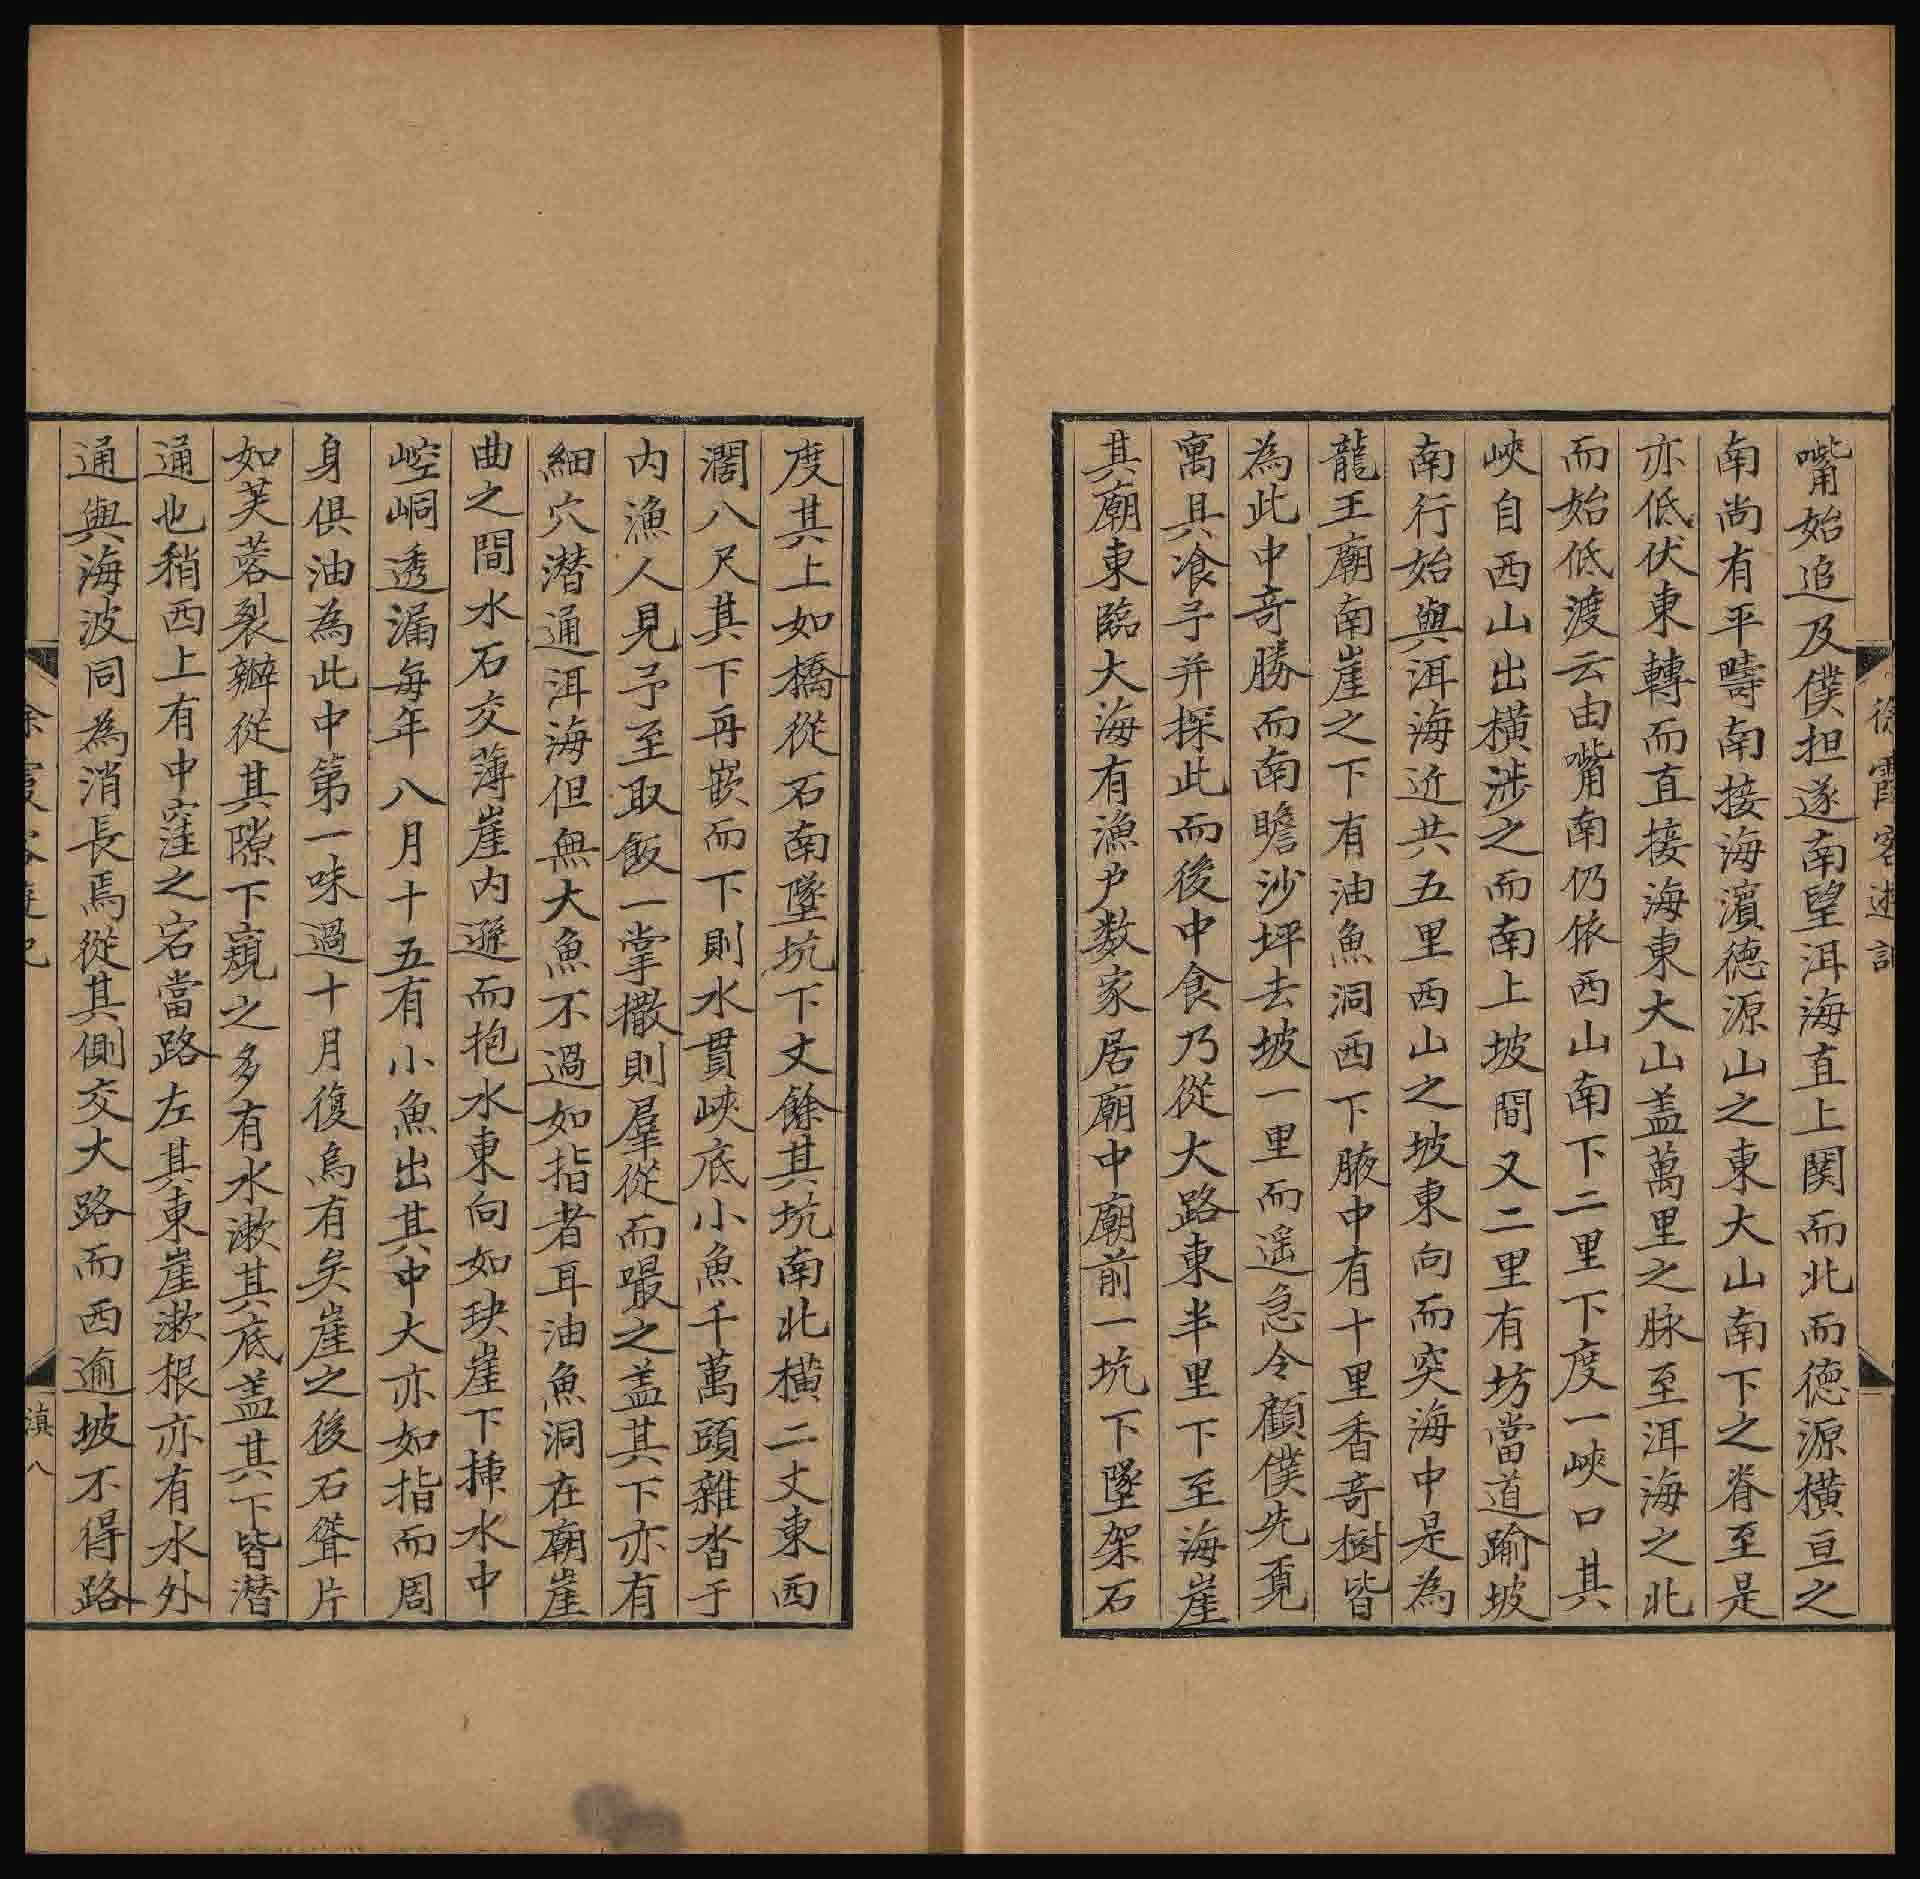 徐霞客遊記
嘴始追及僕担遂南望洱海直上関而北而德源橫亘之
南尚有平疇南接海濵德源山之東大山南下之脊至是
亦低伏東轉而直接海東大山盖萬里之脉至洱海之北
而始低渡云由嘴南仍依西山南下二里下度一峽口其
峽自西山出橫涉之而南上坡間又二里有坊當道踰坡
南行始與洱海近共五里西山之坡東向而突海中是為
龍王廟南崖之下有油魚洞西下腋中有十里香奇樹皆
為此中奇勝而南瞻沙坪去坡一里而遥急令顧僕先覔
寓具飡予并探此而後中食乃從大路東半里下至海崖
其廟東臨大海有漁户数家居廟中廟前一坑下墜架石
度其上如橋從石南墜坑下丈餘其坑南北橫二丈東西
濶八尺其下再嵌而下則水貫峽底小魚千萬頭雜沓于
内漁人見予至取飯一掌撒則羣從而嘬之盖其下亦有
細穴潜通洱海但無大魚不過如指者耳油魚洞在廟崖
曲之間水石交薄崖内遜而抱水東向如玦崖下揷水中
崆峒透漏每年八月十五有小魚出其中大亦如指而周
身俱油為此中第一味過十月復烏有矣崖之後石聳片
如芙蓉裂瓣從其隙下窺之多有水漱其底盖其下皆潜
通也稍西上有中窪之宕當路左其東崖漱根亦有水外
通與海波同為消長焉從其側交大路而西逾坡不得路
滇八